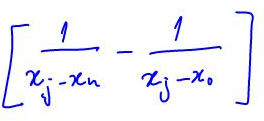 [ \frac{1}{x_j - x_n} - \frac{1}{x_j - x_0} ]